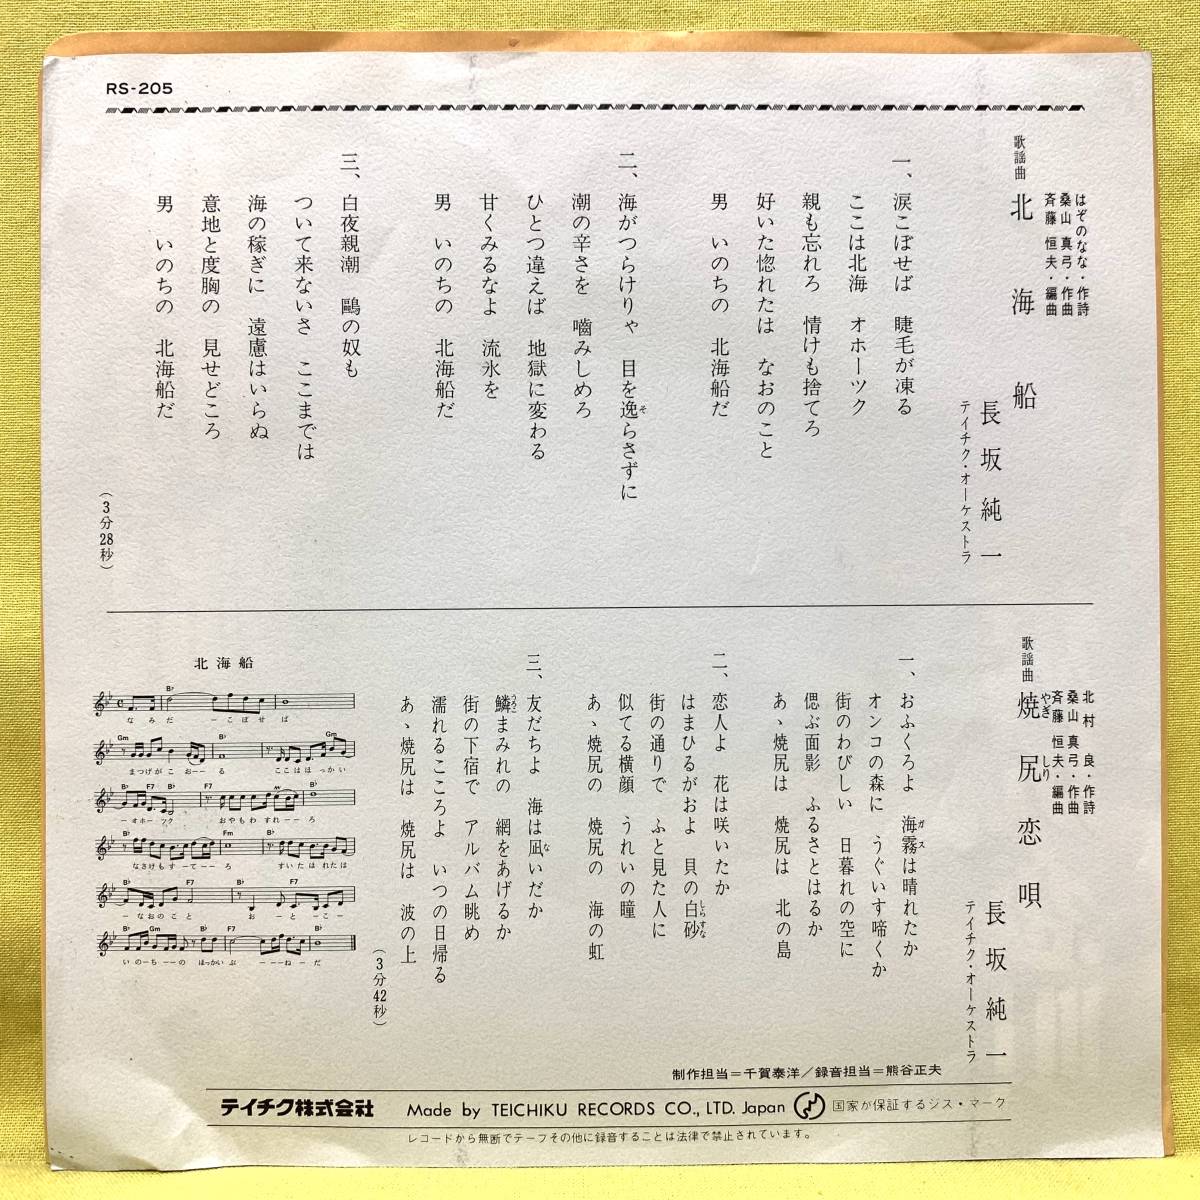 RS-205
歌謡曲
北海船
はぞのなな・作詩
桑山真弓・作曲
斉藤恒夫・編曲
長坂純一
テイチク・オーケストラ
一、涙こぼせば 睫毛が凍る
ここは北海 オホーツク
親も忘れろ 情けも捨てろ
好いた惚れたは なおのこと
男 いのちの 北海船だ
二、海がつらけりゃ 目を逸らさずに
そ
潮の辛さを 嚙みしめろ
ひとつ違えば 地獄に変わる
甘くみるなよ 流氷を
男 いのちの 北海船だ
三、白夜親潮 鷗の奴も
ついて来ないさ ここまでは
海の稼ぎに 遠慮はいらぬ
意地と度胸の 見せどころ
男 いのちの 北海船だ
(3分28秒)
歌謡曲
焼尻恋唄
やぎしり
北村良・作詩
桑山真弓・作曲
斉藤恒夫・編曲
長坂純一
テイチク・オーケストラ
一、おふくろよ 海霧は晴れたか
ガス
オンコの森に うぐいす啼くか
街のわびしい 日暮れの空に
偲ぶ面影 ふるさとはるか
あゝ焼尻は 焼尻は 北の島
二、恋人よ 花は咲いたか
はまひるがおよ 貝の白砂
しらすな
街の通りで ふと見た人に
似てる横顔 うれいの瞳
あゝ焼尻の 焼尻の 海の虹
三、友だちよ 海は凪いだか
な
鱗まみれの 網をあげるか
うろこ
街の下宿で アルバム眺め
濡れるこころよ いつの日帰る
あゝ焼尻は 焼尻は 波の上
(3分42秒)
北海船
B♭
なみだ ーこぼせば
Gm B♭ Gm
まつげがこおーる ここはほっかい
B♭ F7 B♭ F7
ーオホーツク おやもわすれーろ
B♭ Fm
なさけもすーてーろ すいたほれたは
B♭ F7 B♭ F7
ーなおのこと おーとーこー
B♭ Gm B♭ F7 B♭
いのーちーーの ほっかいぶ ーーーねーだ
制作担当=千賀泰洋/録音担当=熊谷正夫
テイチク株式会社 Made by TEICHIKU RECORDS CO., LTD. Japan 国家が保証するジス・マーク
レコードから無断でテープその他に録音することは法律で禁止されています。